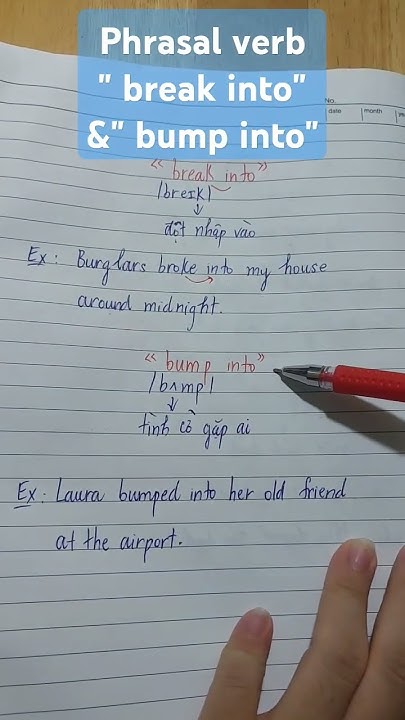 Phrasal verb
" break into"
&" bump into"
No.
date month
" break into"
/breɪk/
↓
đột nhập vào
Ex: Burglars broke into my house
around midnight.
" bump into"
/bʌmp/
↓
tình cờ gặp ai
Ex: Laura bumped into her old friend
at the airport.